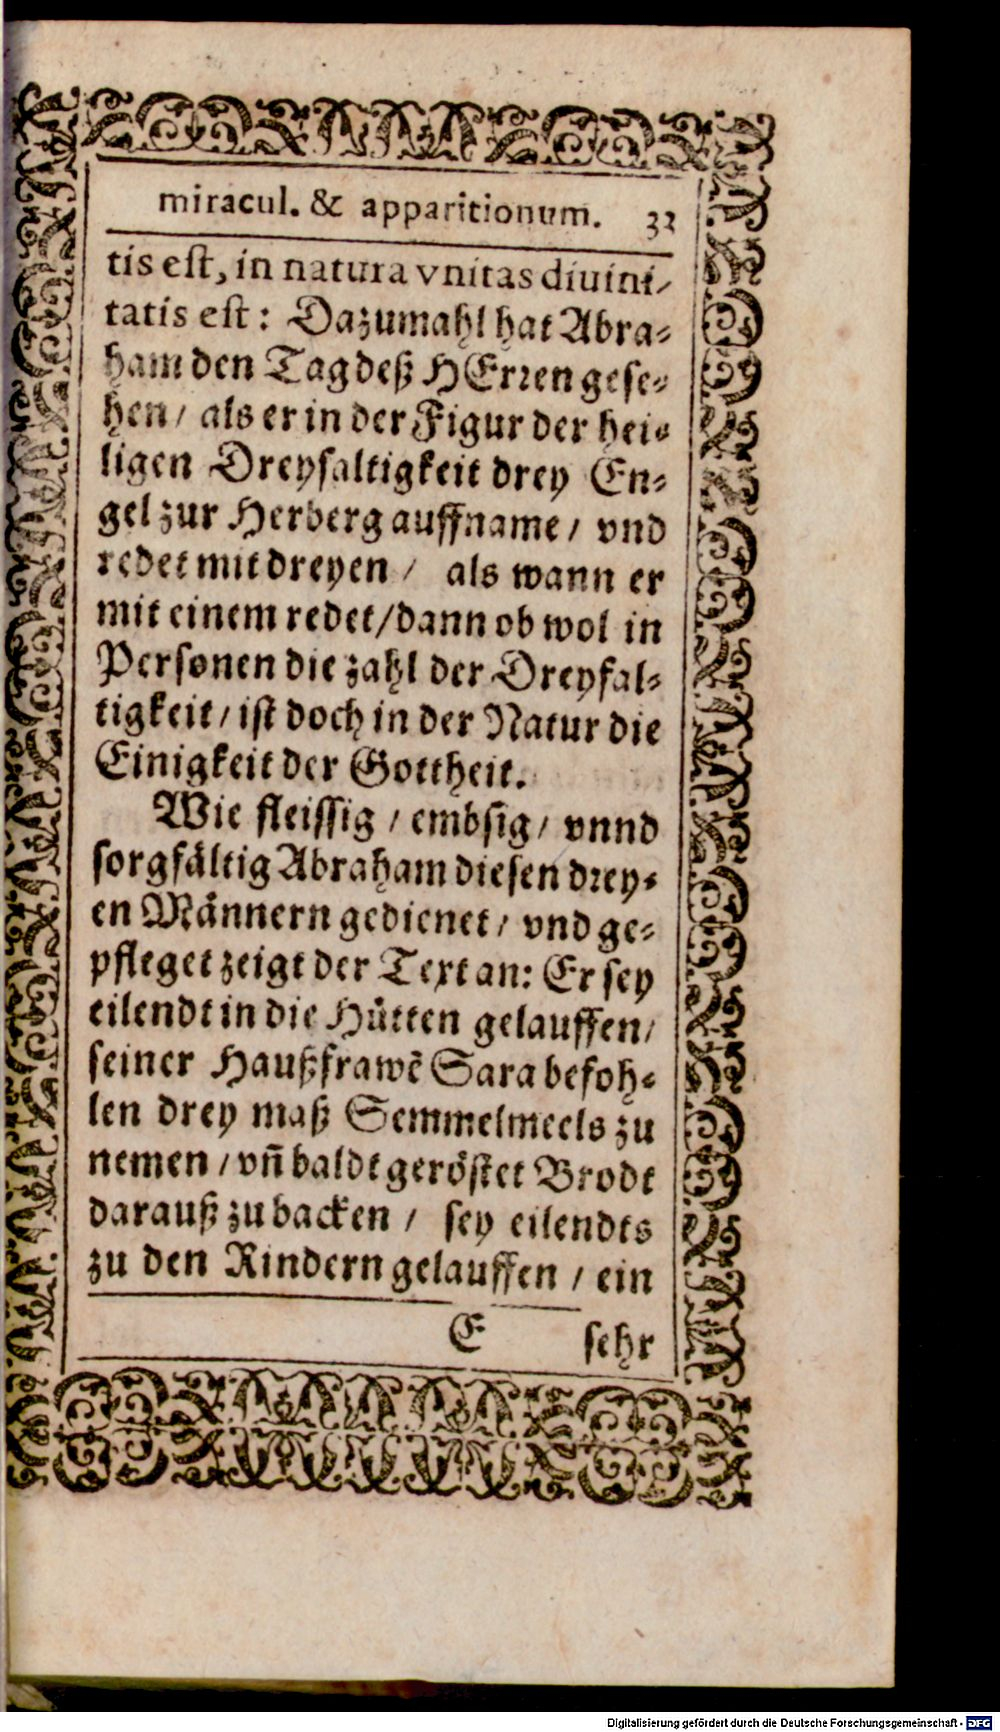 miracul. & apparitionum. 33
tis est, in natura vnitas diuini-
tatis est: Dazumahl hat Abra-
ham den Tag deß HErren gese-
hen / als er in der Figur der hei-
ligen Dreyfaltigkeit drey En-
gel zur Herberg auffname / vnd
redet mit dreyen / als wann er
mit einem redet / dann ob wol in
Personen die zahl der Dreyfal-
tigkeit / ist doch in der Natur die
Einigkeit der Gottheit.
Wie fleissig / embsig / vnnd
sorgfältig Abraham diesen drey-
en Männern gedienet / vnd ge-
pfleget zeigt der Text an: Er sey
eilendt in die Hütten gelauffen /
seiner Haußfrawẽ Sara befoh-
len drey maß Semmelmeels zu
nemen / vñ baldt geröstet Brodt
darauß zu backen / sey eilendts
zu den Rindern gelauffen / ein
E sehr
Digitalisierung gefördert durch die Deutsche Forschungsgemeinschaft - DFG